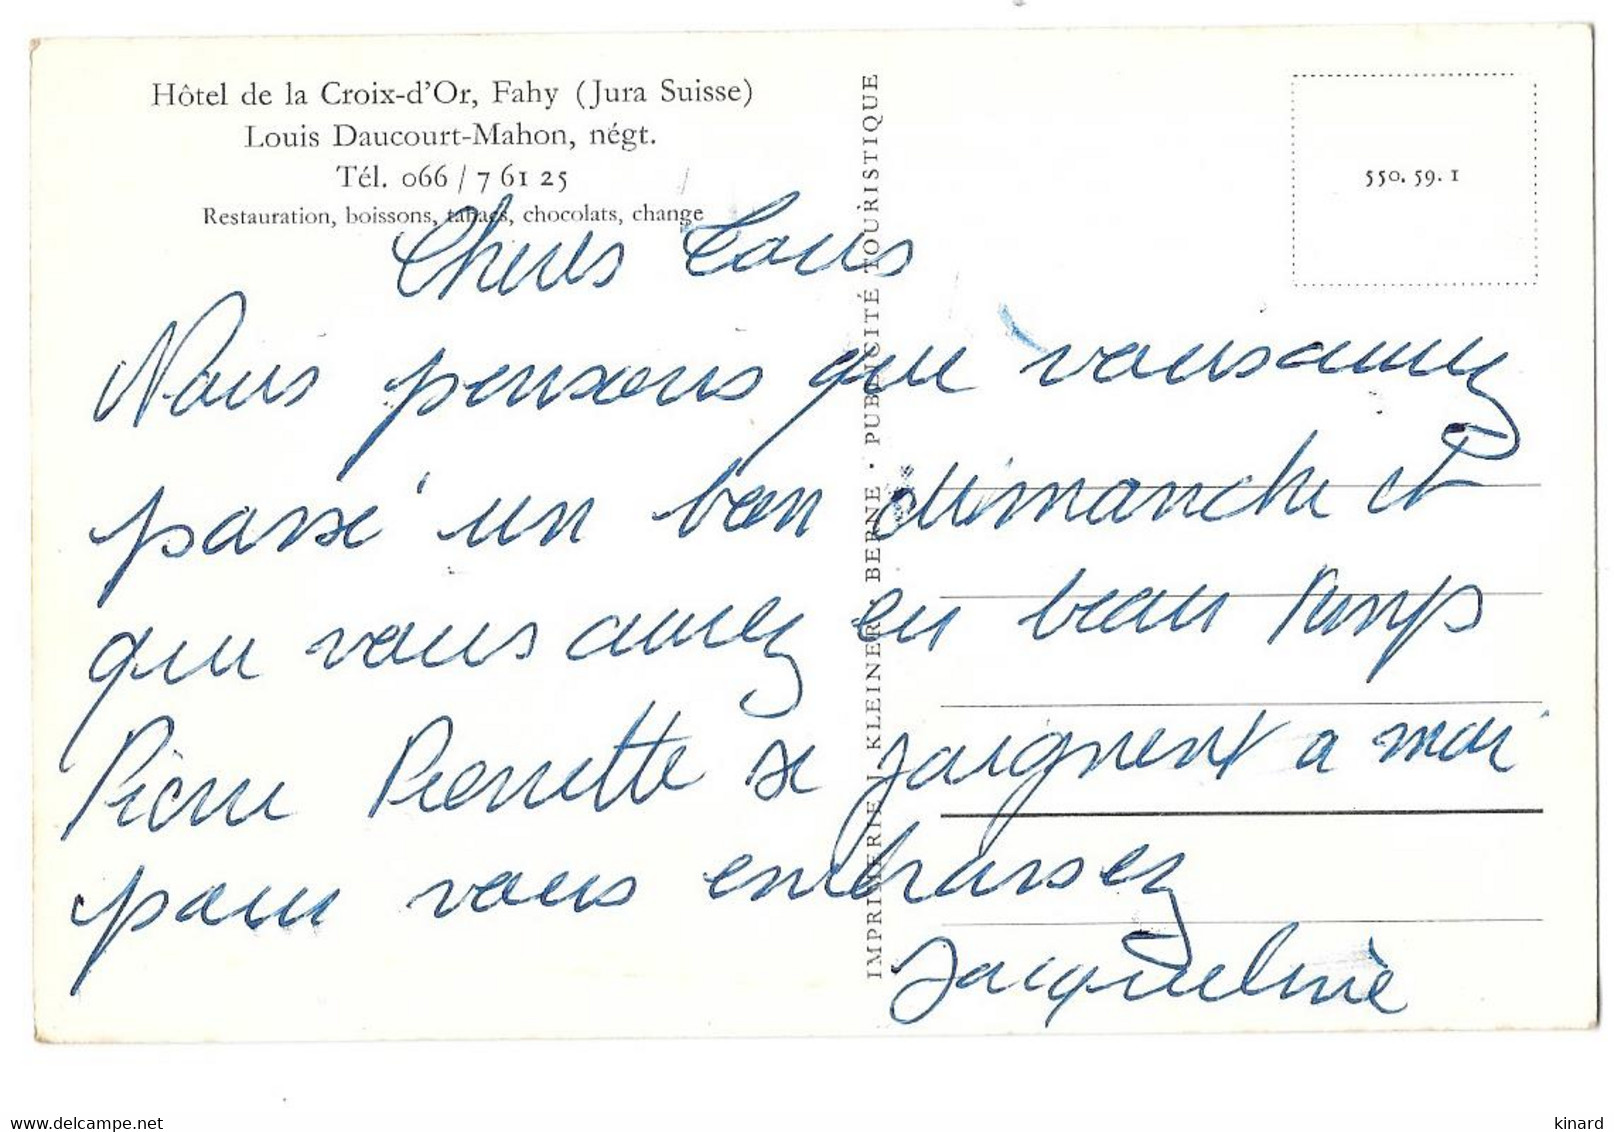 Hôtel de la Croix-d'Or, Fahy (Jura Suisse)
Louis Daucourt-Mahon, négt.
Tél. 066 / 7 61 25
Restauration, boissons, tabacs, chocolats, change
550.59.1
IMPRIMERIE KLEINER, BERNE · PUBLICITÉ TOURISTIQUE
Chers Tous
Nous pensons que vous aurez
passé un bon dimanche et
que vous aurez eu beau temps
Pierre Pierrette se joignent a moi
pour vous embrassez
Jacqueline
kinard